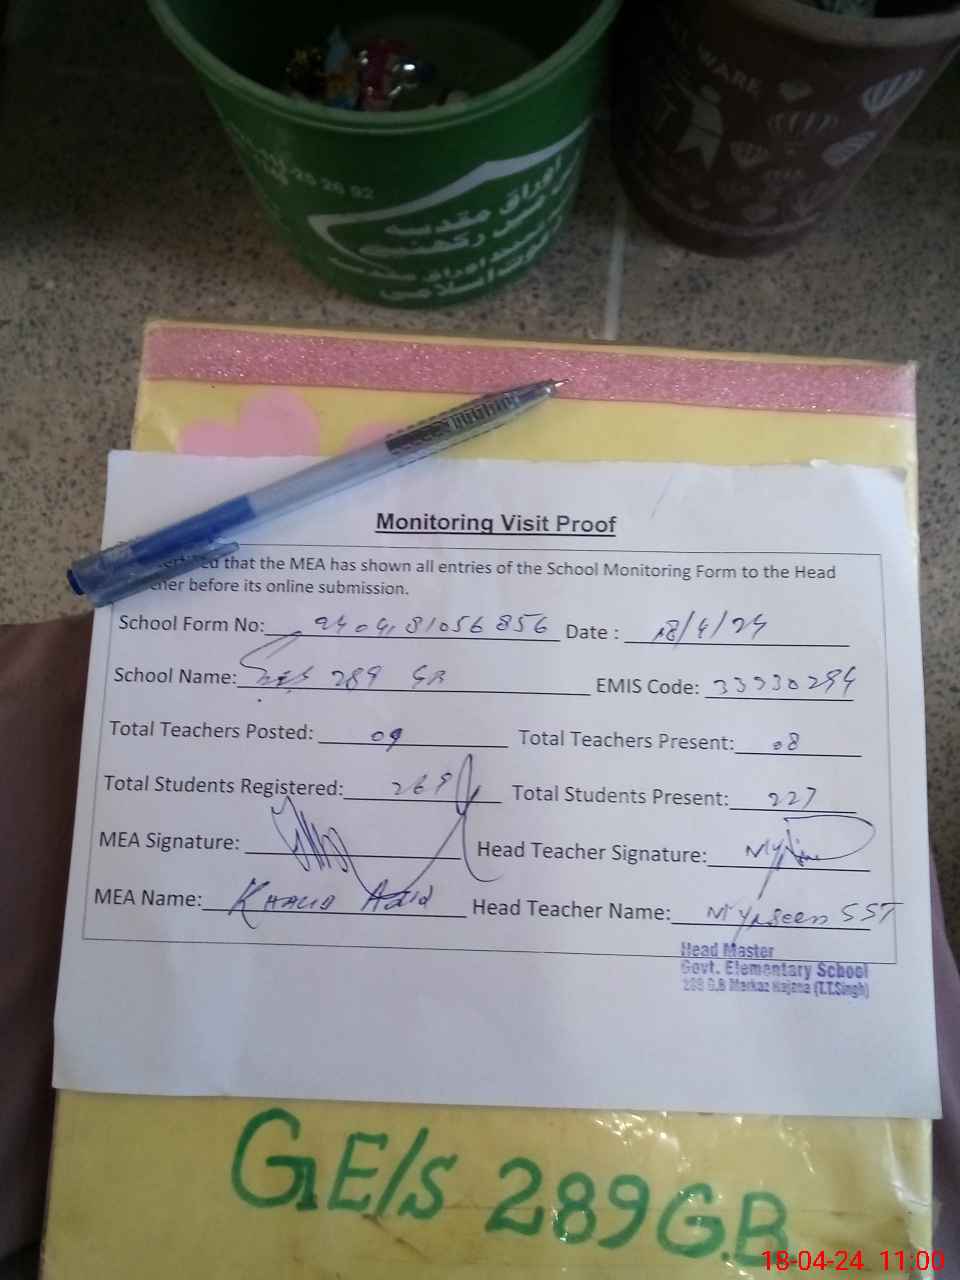 WARE
25 26 92
اوراق مقدسہ
Monitoring Visit Proof
that the MEA has shown all entries of the School Monitoring Form to the Head
before its online submission.
School Form No: Date : 18/4/24
School Name: 289 GB EMIS Code: 33330294
Total Teachers Posted: 09 Total Teachers Present: 08
Total Students Registered: 269 Total Students Present: 227
MEA Signature: Head Teacher Signature:
MEA Name: Khalid Head Teacher Name: M Yaseen SST
Head Master
Govt. Elementary School
289 G.B Markaz Rajana (T.T.Singh)
GE/S 289 G.B.
18-04-24 11:00